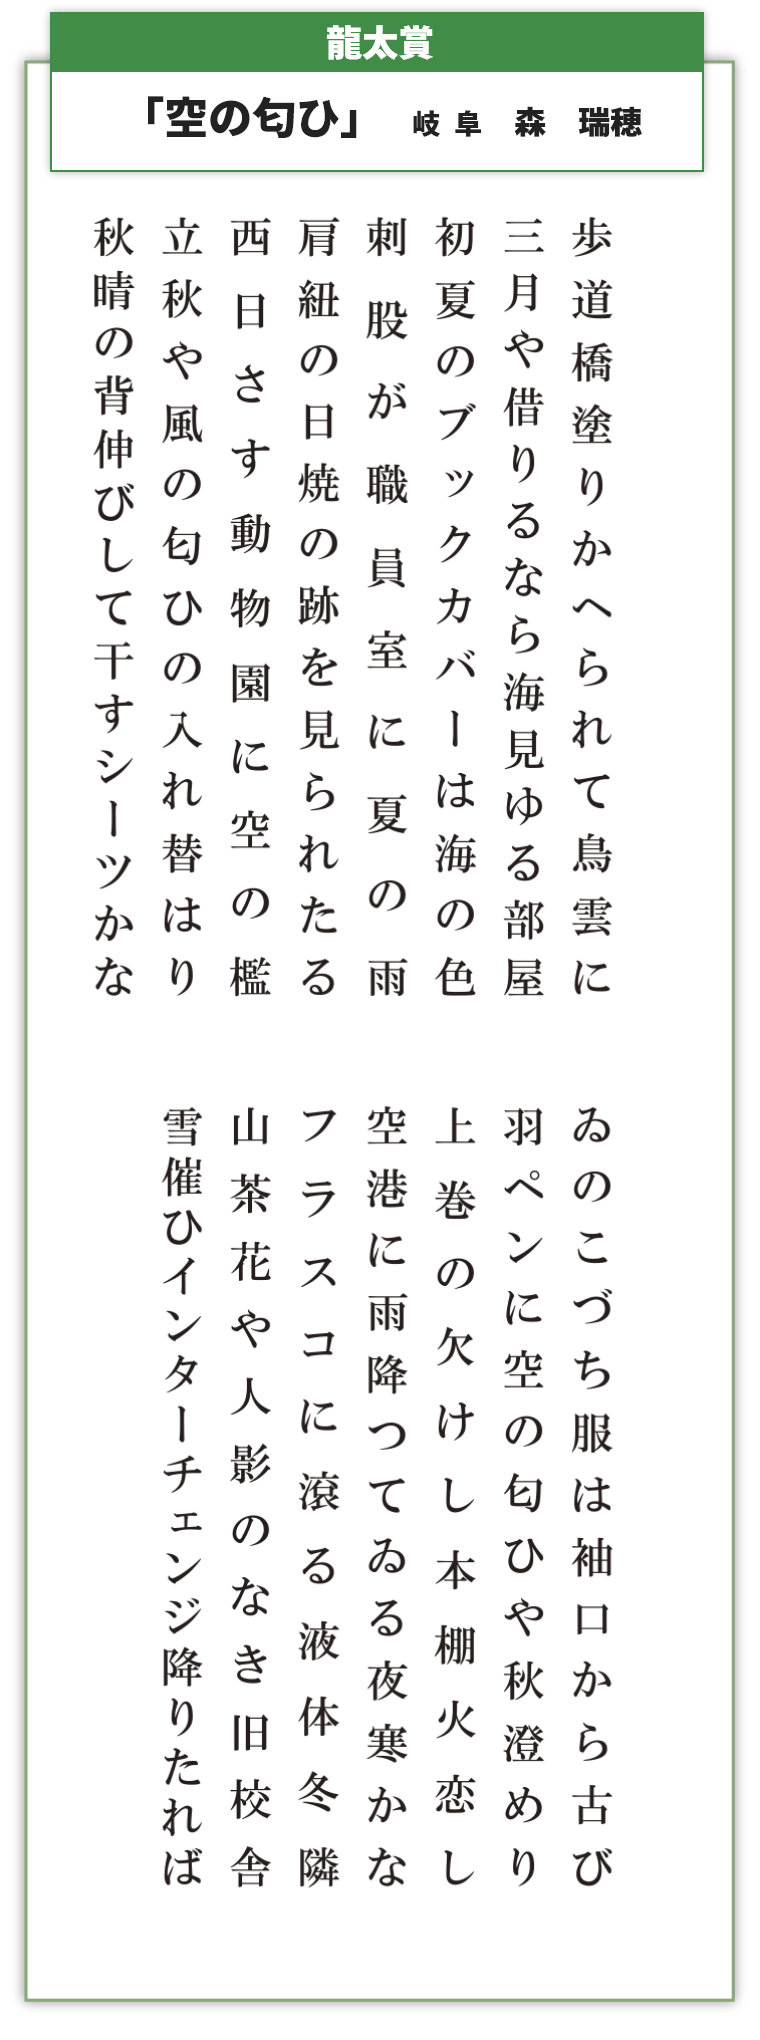 龍太賞
「空の匂ひ」 岐阜 森 瑞穂
歩道橋塗りかへられて鳥雲に
三月や借りるなら海見ゆる部屋
初夏のブックカバーは海の色
刺股が職員室に夏の雨
肩紐の日焼の跡を見られたる
西日さす動物園に空の檻
立秋や風の匂ひの入れ替はり
秋晴の背伸びして干すシーツかな
ゐのこづち服は袖口から古び
羽ペンに空の匂ひや秋澄めり
上巻の欠けし本棚火恋し
空港に雨降つてゐる夜寒かな
フラスコに滾る液体冬隣
山茶花や人影のなき旧校舎
雪催ひインターチェンジ降りたれば